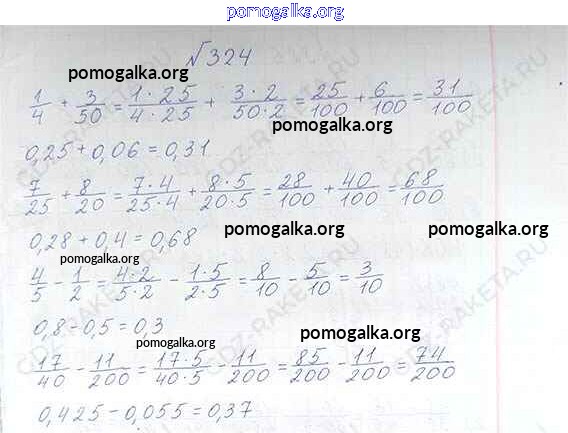 pomogalka.org
√324
pomogalka.org
1/4 + 3/50 = 1·25/4·25 + 3·2/50·2 = 25/100 + 6/100 = 31/100
pomogalka.org
0,25 + 0,06 = 0,31
7/25 + 8/20 = 7·4/25·4 + 8·5/20·5 = 28/100 + 40/100 = 68/100
0,28 + 0,4 = 0,68
pomogalka.org pomogalka.org
pomogalka.org
4/5 - 1/2 = 4·2/5·2 - 1·5/2·5 = 8/10 - 5/10 = 3/10
0,8 - 0,5 = 0,3
pomogalka.org pomogalka.org
17/40 - 11/200 = 17·5/40·5 - 11/200 = 85/200 - 11/200 = 74/200
0,425 - 0,055 = 0,37
GDZ-RAKETA.RU